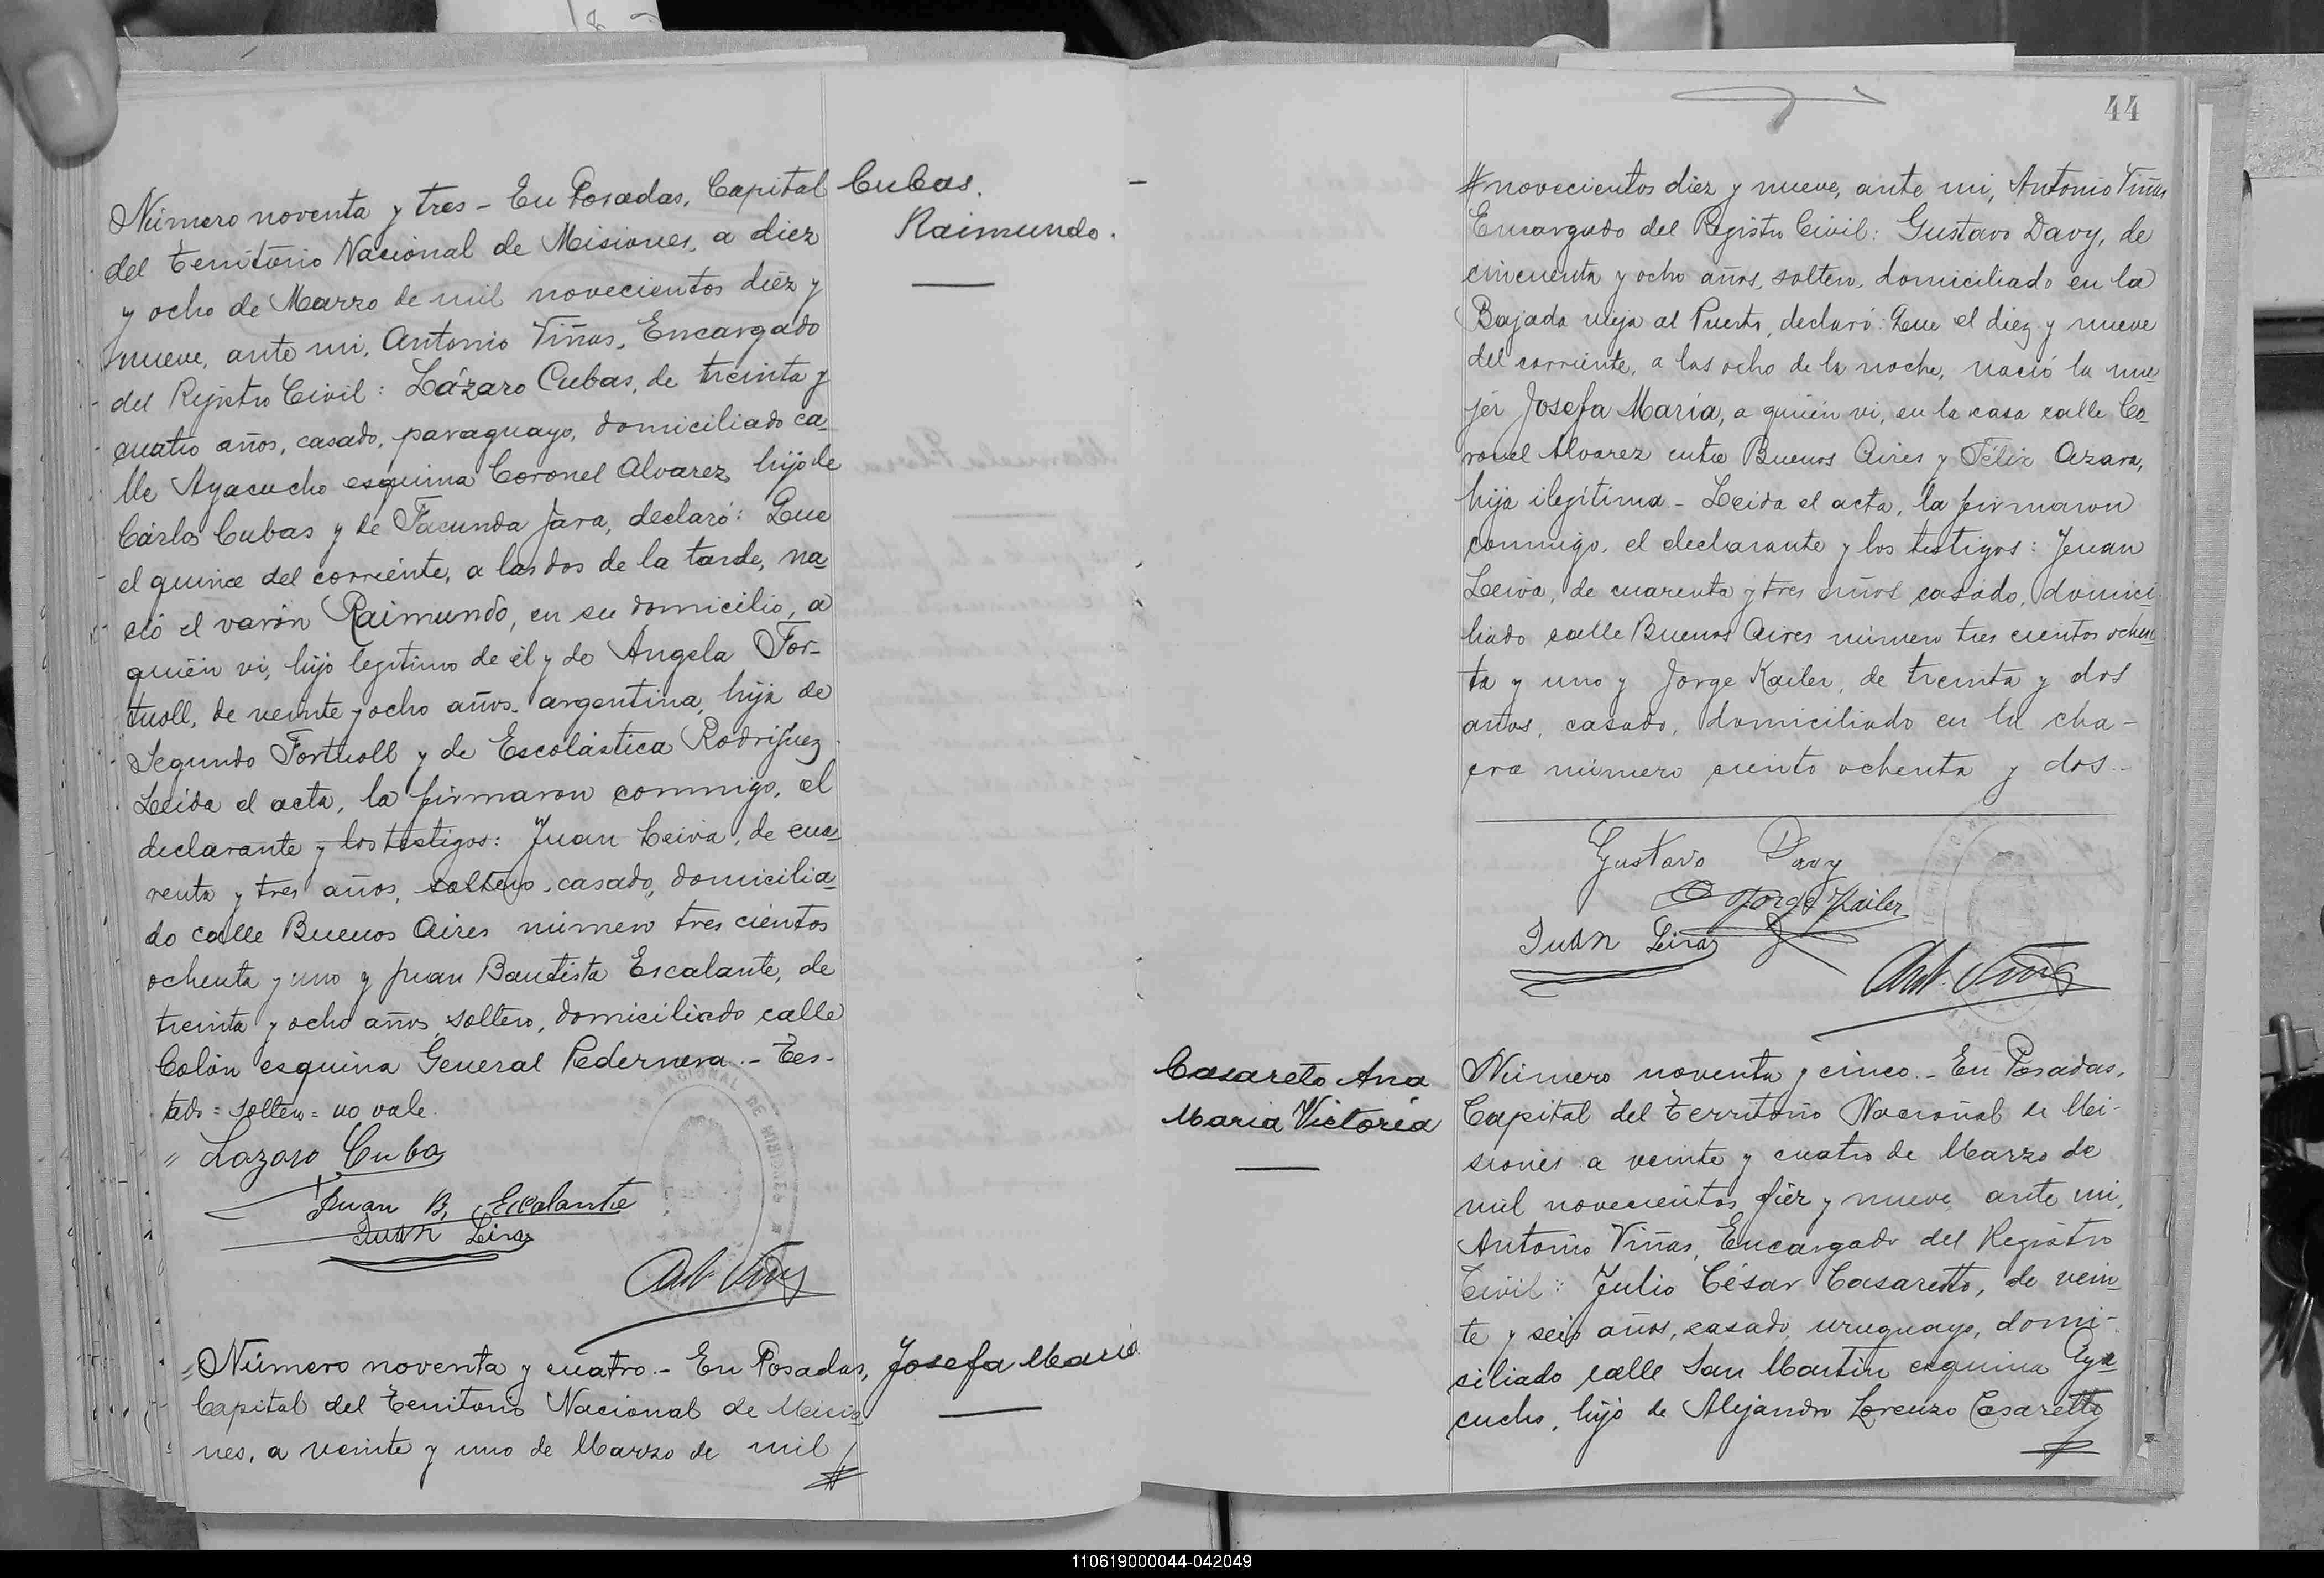 Cubas.
Raimundo.
Número noventa y tres - En Posadas, Capital
del Territorio Nacional de Misiones, a diez
y ocho de Marzo de mil novecientos diez y
nueve, ante mi, Antonio Viñas, Encargado
del Registro Civil: Lázaro Cubas, de treinta y
cuatro años, casado, paraguayo, domiciliado ca-
lle Ayacucho esquina Coronel Alvarez, hijo de
Cárlos Cubas y de Facunda Jara, declaró: Que
el quince del corriente, a las dos de la tarde, na-
ció el varón Raimundo, en su domicilio, a
quién vi, hijo legítimo de él y de Angela For-
tuoll, de veinte y ocho años, argentina, hija de
Segundo Fortuoll y de Escolástica Rodriguez
Leida el acta, la firmaron conmigo, el
declarante y los testigos: Juan Leiva, de cua-
renta y tres años, soltero, casado, domicilia-
do calle Buenos Aires número tres cientos
ochenta y uno y Juan Bautista Escalante, de
treinta y ocho años, soltero, domiciliado calle
Colón esquina General Pedernera.- Tes-
tado = soltero = no vale.
Lazaro Cuba
Juan B. Escalante
Juan Leiva
Ant. Viñas
NACIONAL DE MISIONES
Josefa Maria
Número noventa y cuatro.- En Posadas,
Capital del Territorio Nacional de Misio-
nes, a veinte y uno de Marzo de mil
#
44
# novecientos diez y nueve, ante mi, Antonio Viñas
Encargado del Registro Civil: Gustavo Davy, de
cincuenta y ocho años, soltero, domiciliado en la
Bajada vieja al Puerto, declaró: Que el diez y nueve
del corriente, a las ocho de la noche, nació la mu-
jer Josefa María, a quién vi, en la casa calle Co-
ronel Alvarez entre Buenos Aires y Félix Azara,
hija ilegítima - Leida el acta, la firmaron
conmigo, el declarante y los testigos: Juan
Leiva, de cuarenta y tres años casado, domici-
liado calle Buenos Aires número tres cientos ochen-
ta y uno y Jorge Kailer, de treinta y dos
años, casado, domiciliado en la cha-
cra número ciento ochenta y dos.-
Gustavo Davy
Jorge Kailer
Juan Leiva
Ant. Viñas
Casareto Ana
Maria Victoria
Número noventa y cinco.- En Posadas,
Capital del Territorio Nacional de Mi-
siones a veinte y cuatro de Marzo de
mil novecientos diez y nueve, ante mi,
Antonio Viñas, Encargado del Registro
Civil: Julio César Casaretto, de vein-
te y seis años, casado, uruguayo, domi-
ciliado calle San Martín esquina Aya-
cucho, hijo de Alejandro Lorenzo Casaretto
#
110619000044-042049